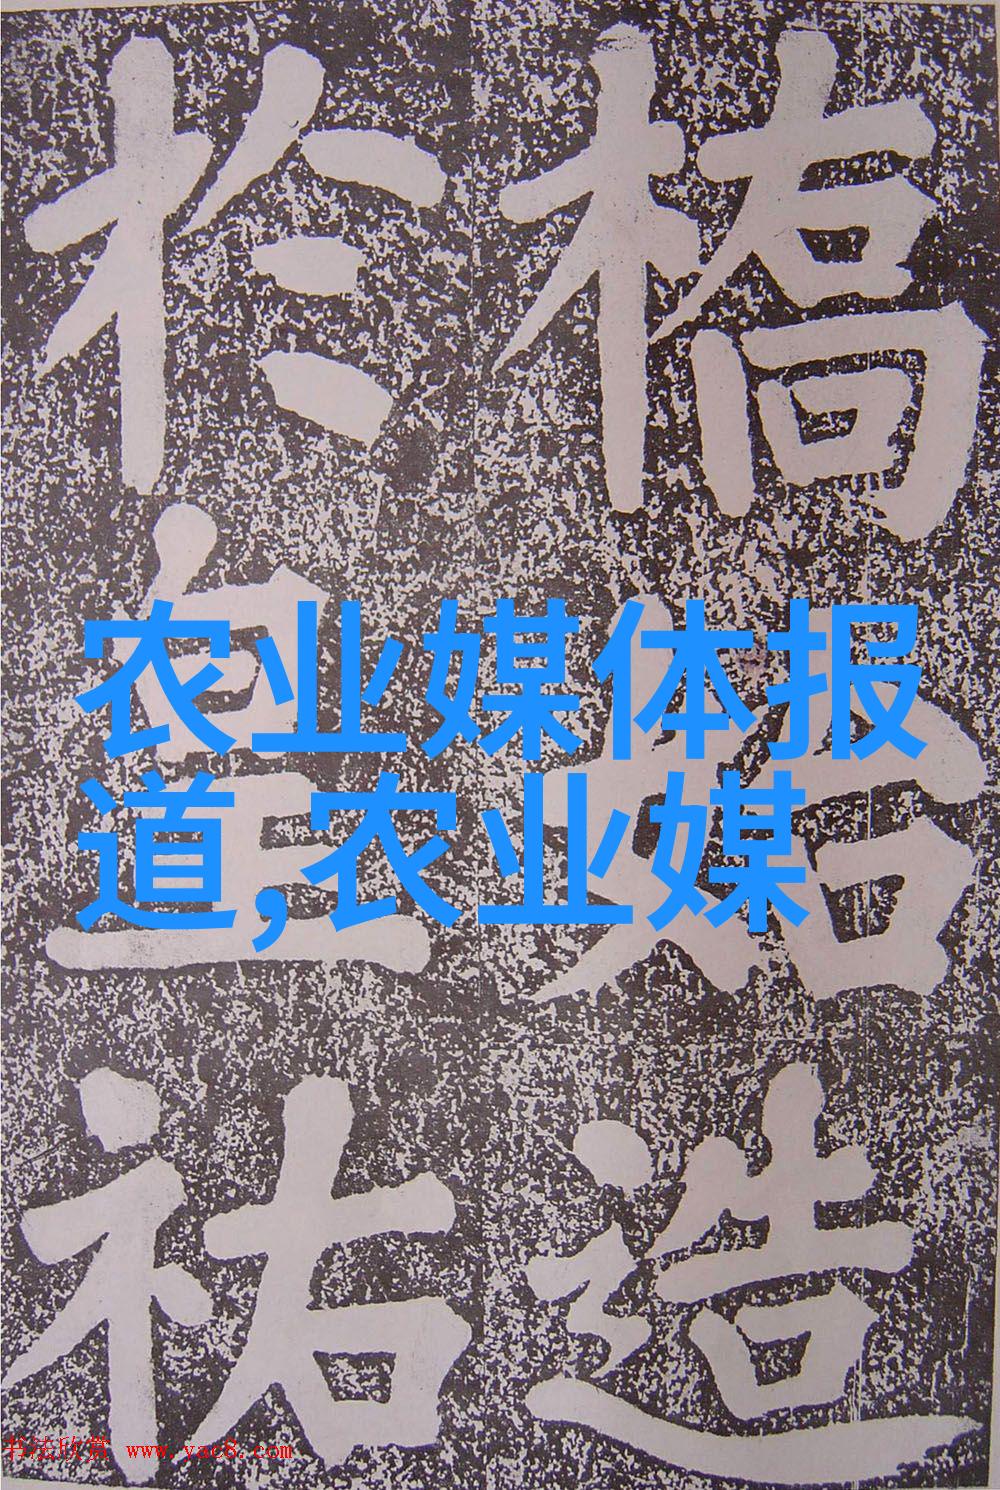 橋始造
於皇祐
农业媒体报
道,农业媒
书法欣赏 www.yac8.com